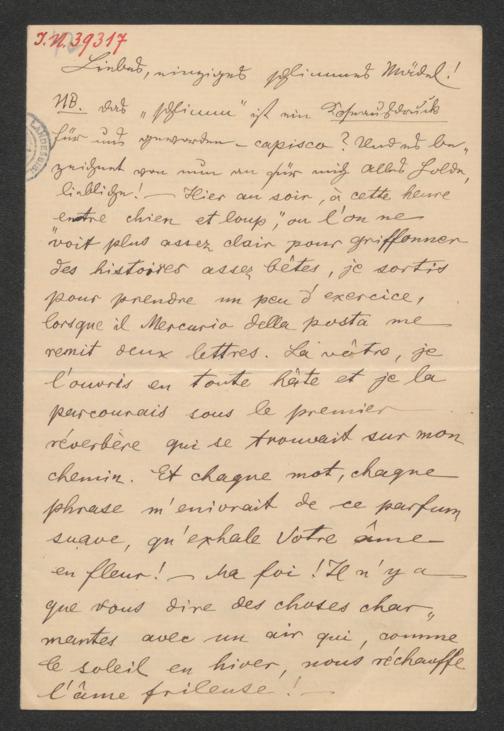 I.N. 39317
Liebes, einziges schlimmes Mädel!
NB. das „schlimm" ist ein Koseausdruck
für uns geworden – capisco? Und es be„
zeichnet von nun an für mich alles Holde,
liebliche! – Hier au soir, à cette heure
entre chien et loup", ou l'on ne
"voit plus assez clair pour griffonner
des histoires assez bêtes, je sortis
pour prendre un peu d'exercice,
lorsque il Mercurio della posta me
remit deux lettres. La vôtre, je
l'ouvris en toute hâte et je la
parcourais sous le premier
réverbère qui se trouvait sur mon
chemin. Et chaque mot, chaque
phrase m'enivrait de ce parfum
suave, qu'exhale Votre âme
en fleur! – Ma foi! Il n'y a
que vous dire des choses char„
mantes avec un air qui, comme
le soleil en hiver, nous réchauffe
l'âme frileuse! –